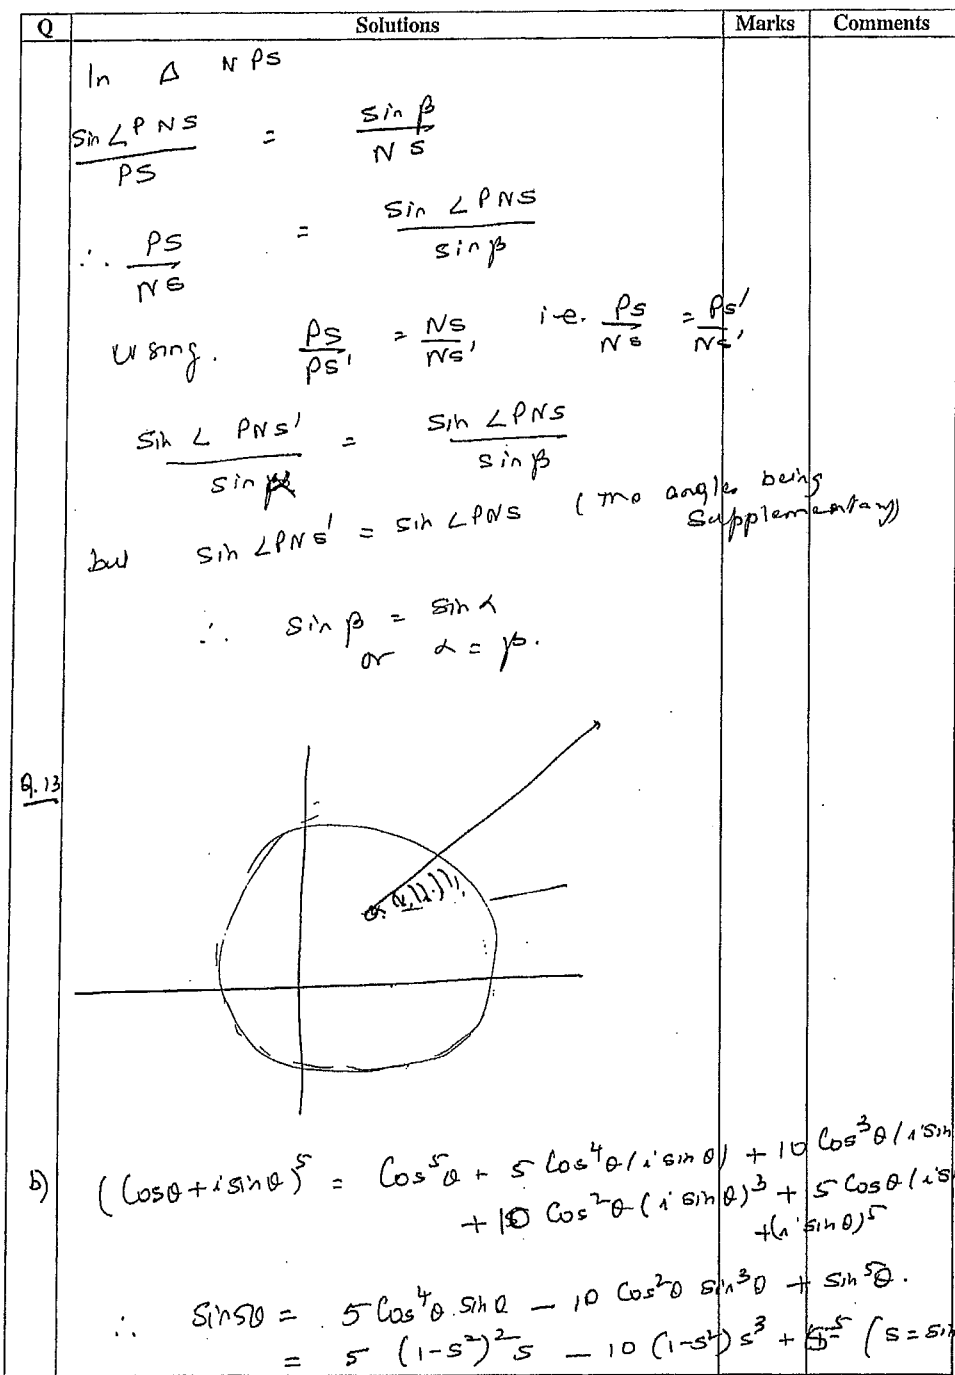 Q Solutions Marks Comments
In Δ NPS
sin ∠PNS / PS = sin β / NS
∴ PS / NS = sin ∠PNS / sin β
using. PS / PS' = NS / NS' i.e. PS / NS = PS' / NS'
Sin ∠ PNS' / sin α = Sin ∠PNS / sin β
but sin ∠PNS' = sin ∠PNS ( angles being
supplementary)
∴ sin β = sin α
or α = β.
Q.13
b) (Cosθ + i sinθ)^5 = Cos^5θ + 5 Cos^4θ (i sin θ) + 10 Cos^3θ (i sin
+ 10 Cos^2θ (i sinθ)^3 + 5 Cosθ (i s
+ (i sinθ)^5
∴ Sin5θ = 5 Cos^4θ. sinθ − 10 Cos^2θ sin^3θ + sin^5θ.
= 5 (1-s^2)^2 s − 10 (1-s^2) s^3 + s^5 (s = sin